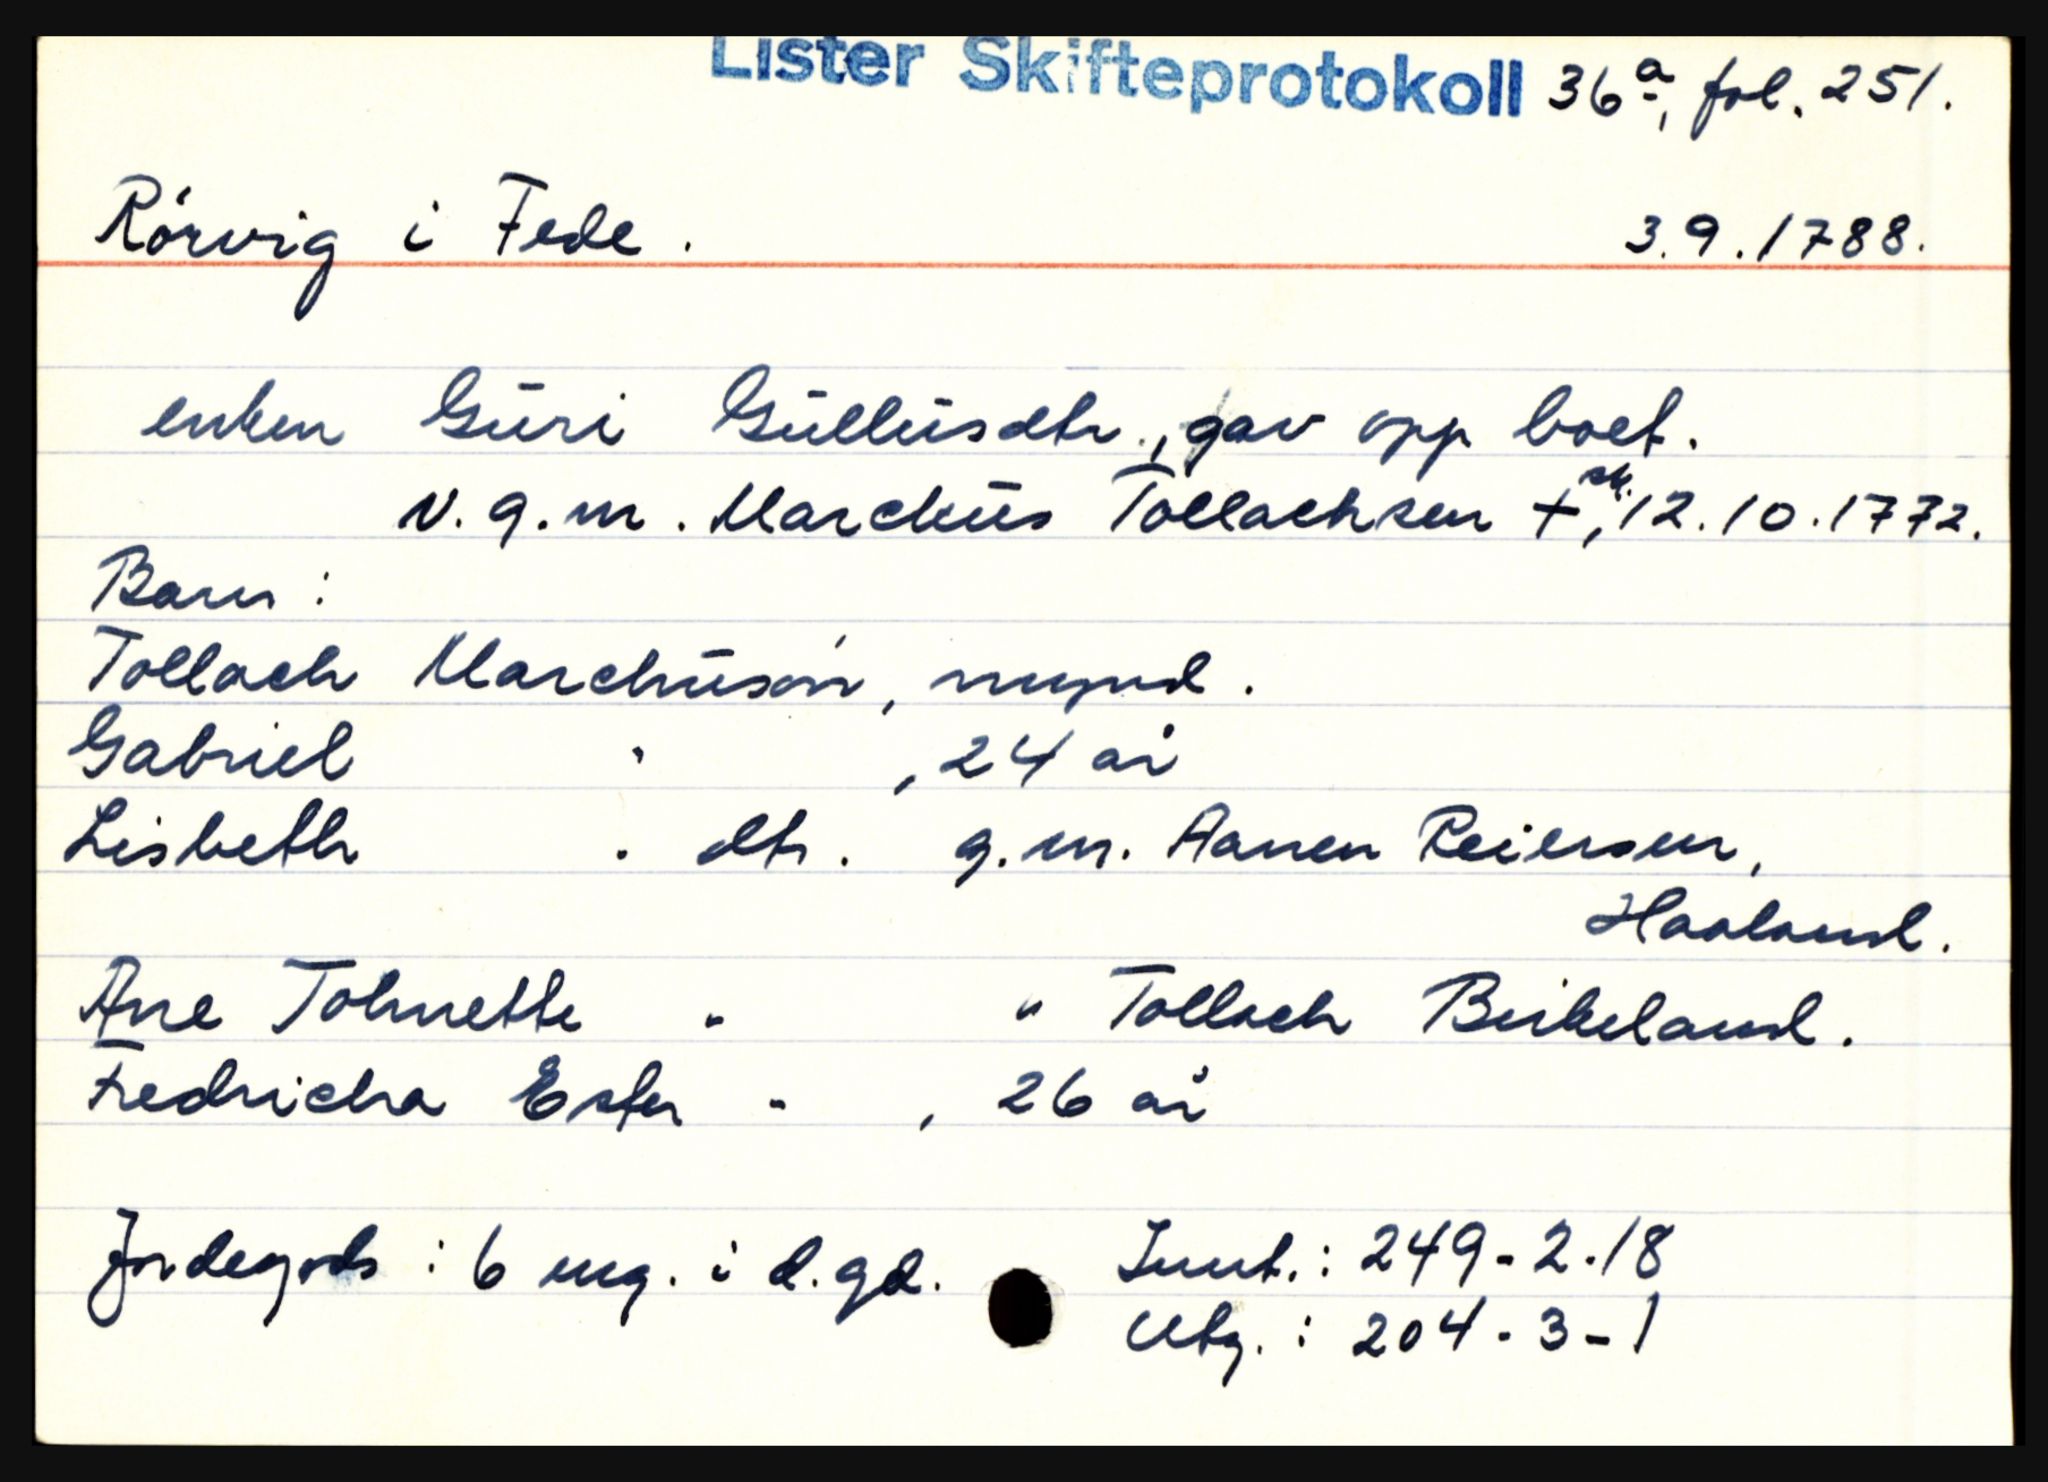 Lister Skifteprotokoll 36a, fol. 251.
Rörvig i Fede. 3.9.1788.
enken Guri Gullusdtr., gav opp boet.
v. g.m. Marchus Tollachsen +, sk. 12.10.1772.
Barn:
Tollach Marchusøn, mynd.
Gabriel " , 24 år
Lisbeth " dtr. g.m. Aanen Reiersen,
Haaland.
Ane Tolmette " " Tollach Birkeland.
Fredricha Ester " , 26 år
Jordegods: 6 eng. i d. gd. Innt.: 249-2-18
Utg.: 204-3-1